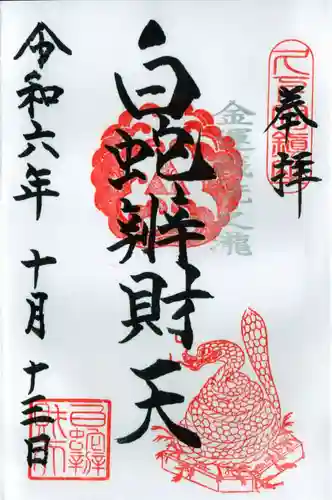 奉拝
金運銭洗之瀧
白蛇辨財天
令和六年 十月 十三日
白蛇辨財天